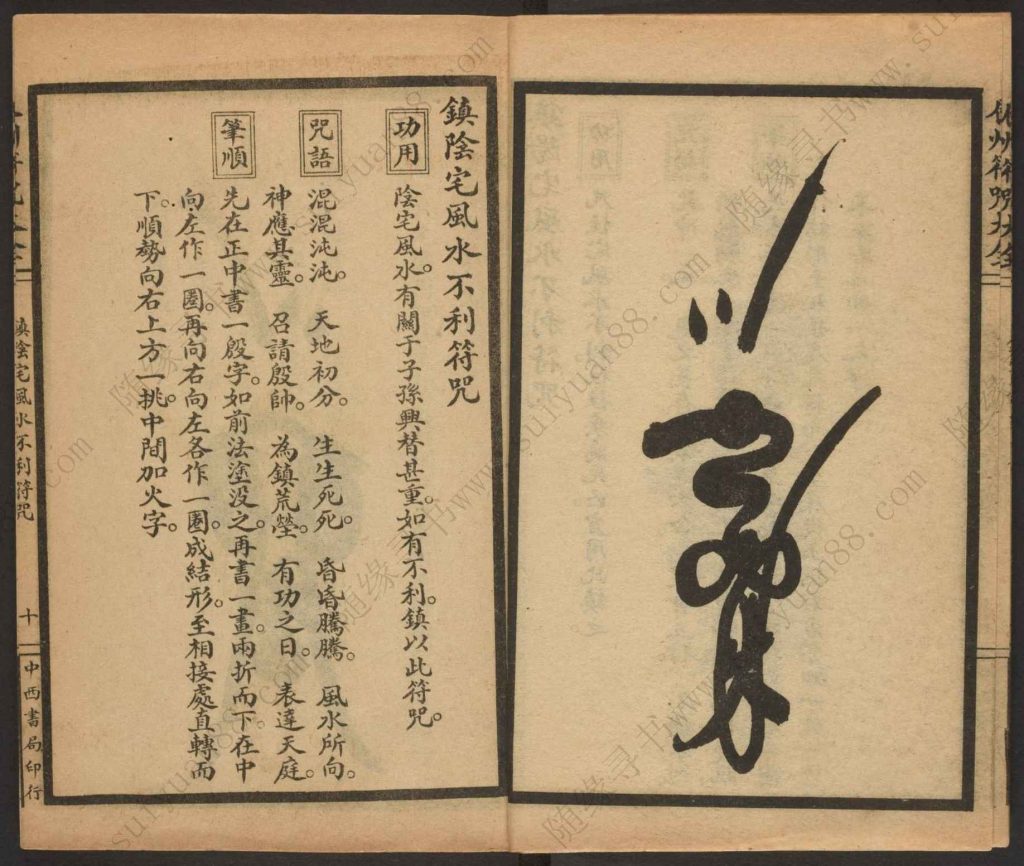 鎮陰宅風水不利符咒
功用
陰宅風水。有關于子孫興替甚重。如有不利。鎮以此符咒。
咒語
混混沌沌。 天地初分。 生生死死。 昏昏騰騰。 風水所向。
神應其靈。 召請殷帥。 為鎮荒塋。 有功之日。 表達天庭。
筆順
先在正中書一殷字。如前法塗没之。再書一畫。兩折而下。在中
向左作一圈。再向右向左各作一圈。成結形。至相接處直轉而
下。順勢向右上方一挑。中間加火字。
鎮陰宅風水不利符咒
十
中西書局印行
符咒大全
随缘寻书www.suiyuan88.com